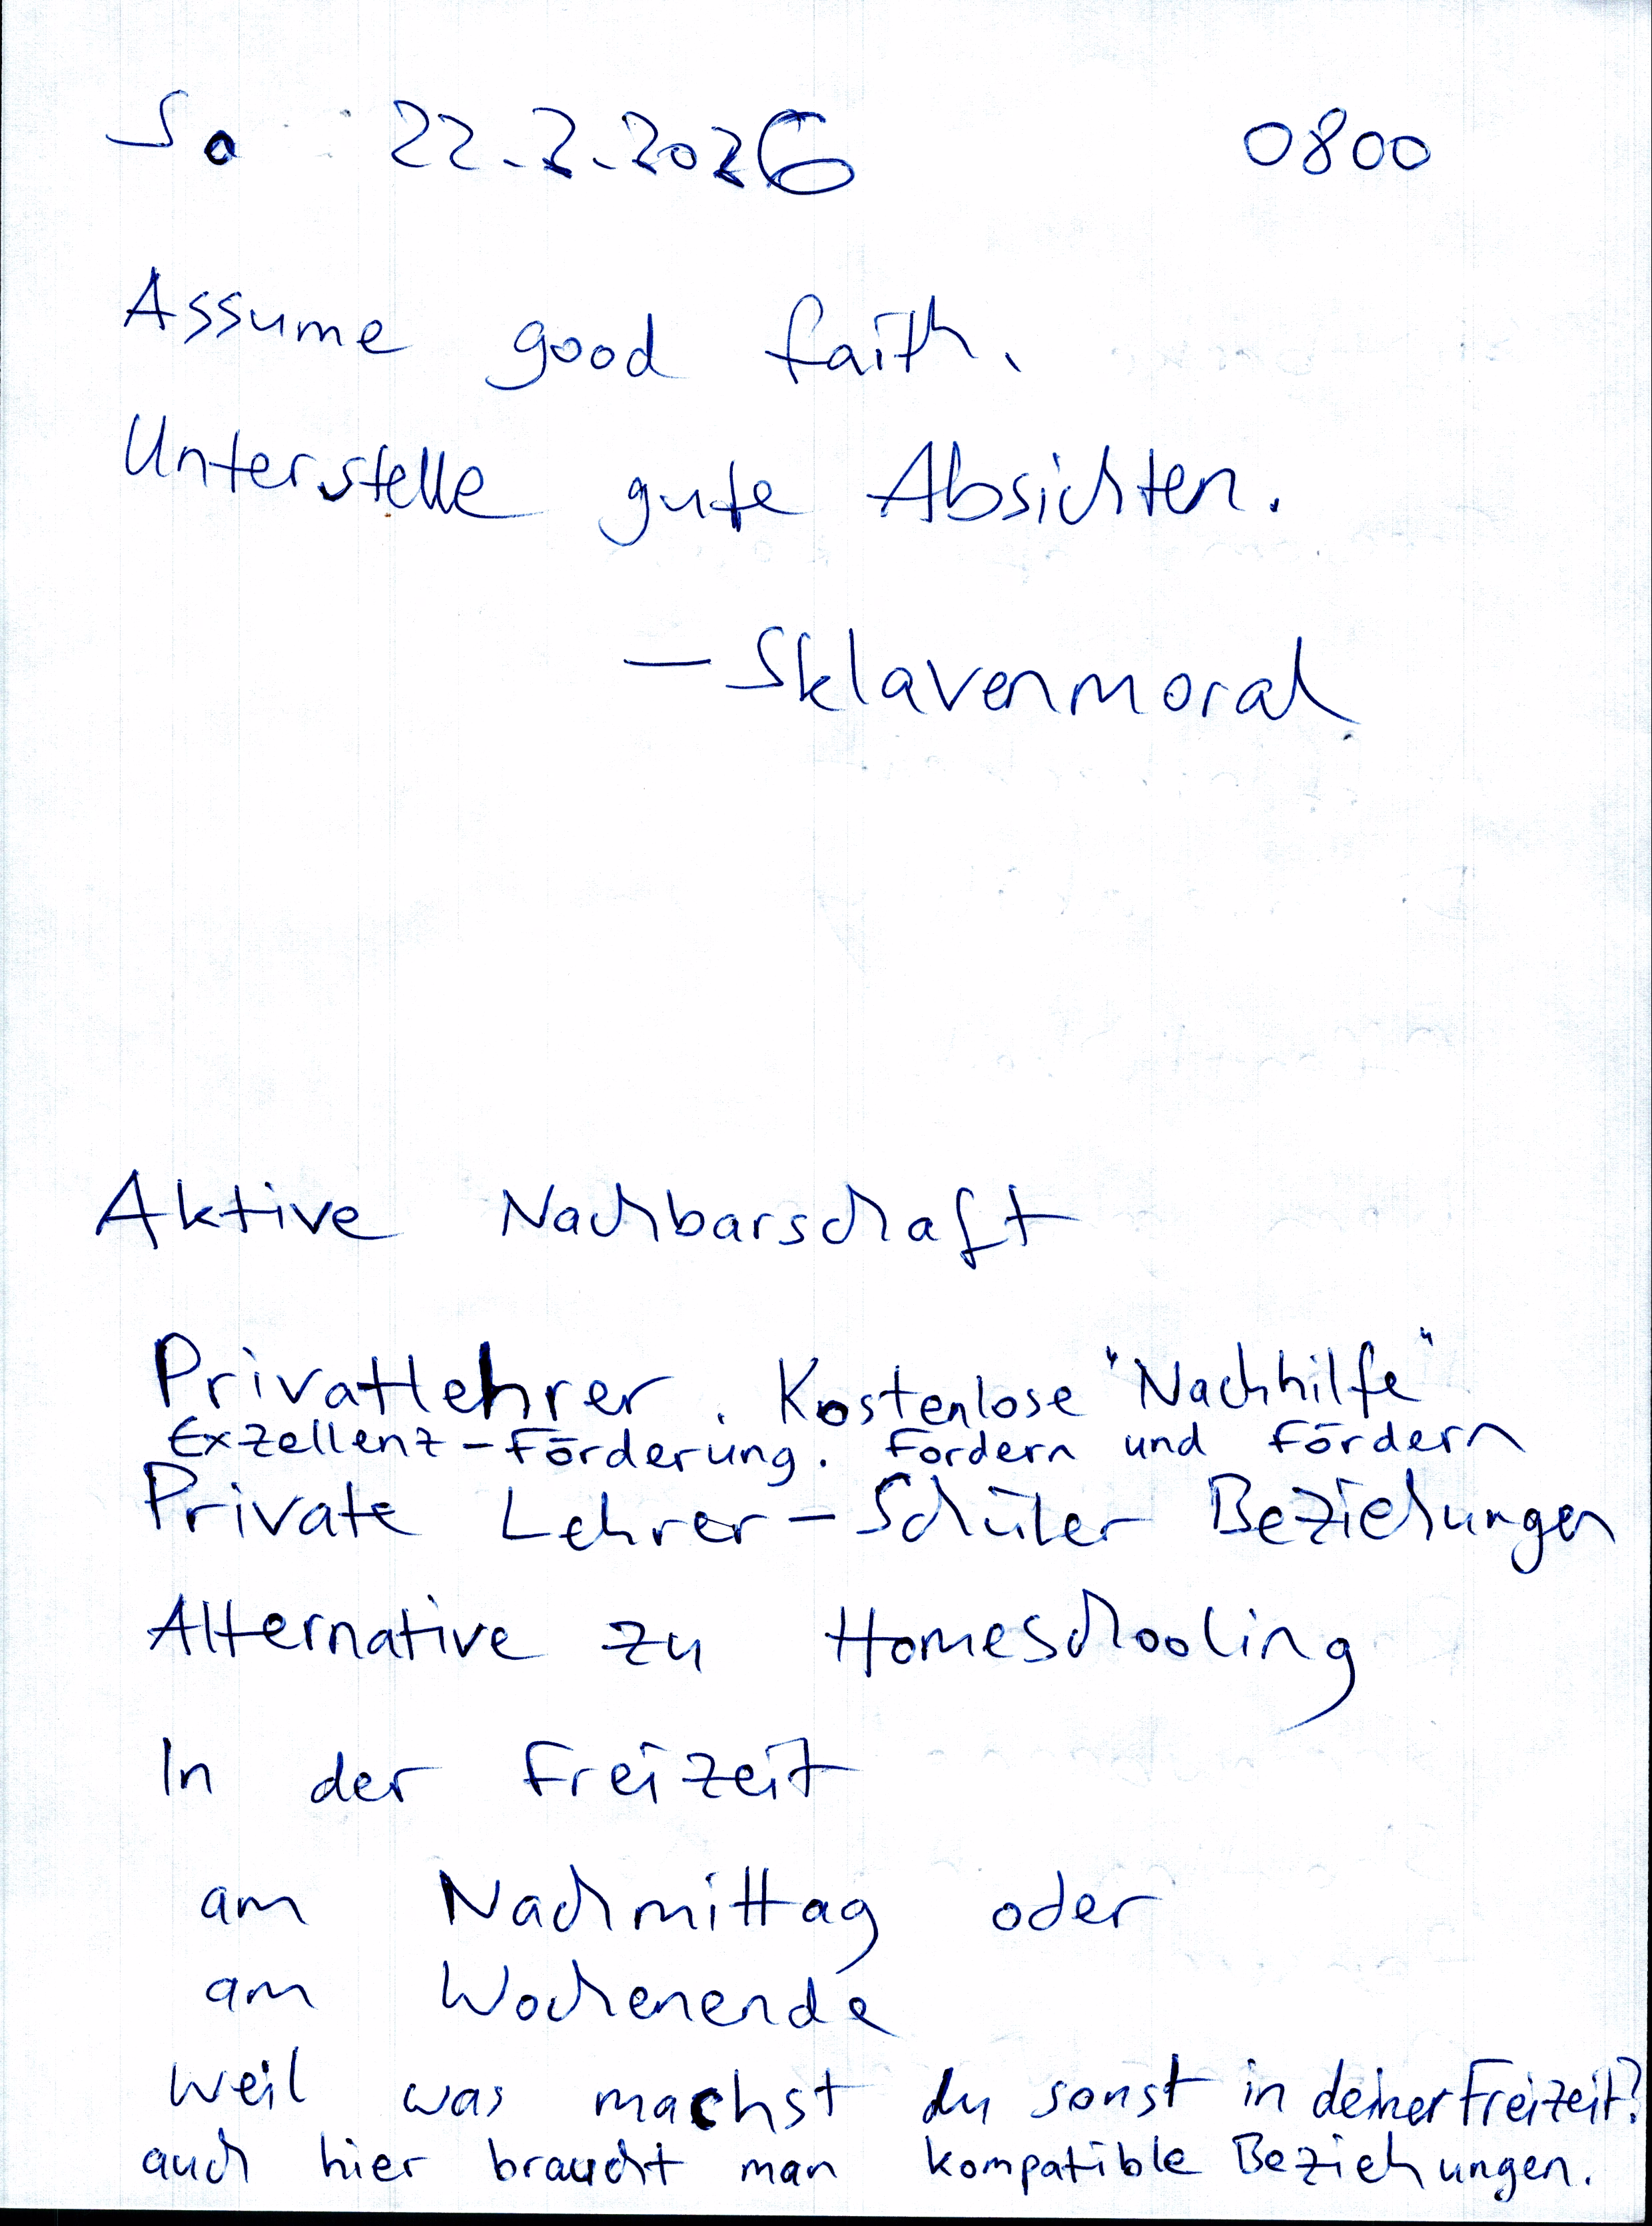 So 22.2.2026 0800
Assume good faith.
Unterstelle gute Absichten.
— Sklavenmoral
Aktive Nachbarschaft
Privatlehrer. Kostenlose "Nachhilfe"
Exzellenz-Förderung. Fordern und Fördern
Private Lehrer-Schüler Beziehungen
Alternative zu Homeschooling
In der Freizeit
am Nachmittag oder
am Wochenende
weil was machst du sonst in deiner Freizeit?
auch hier braucht man kompatible Beziehungen.